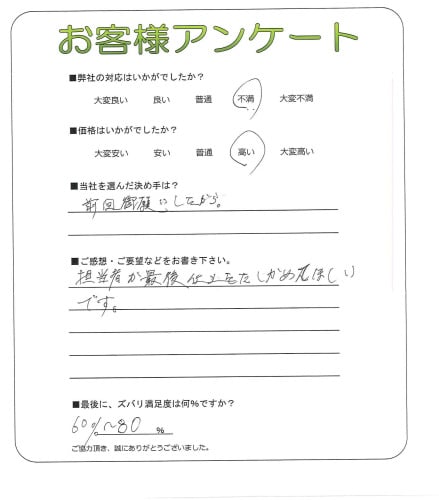 お客様アンケート
■弊社の対応はいかがでしたか？
大変良い　良い　普通　不満　大変不満
■価格はいかがでしたか？
大変安い　安い　普通　高い　大変高い
■当社を選んだ決め手は？
前回御願いしたから。
■ご感想・ご要望などをお書き下さい。
担当者が最後仕上をたしかめてほしい
です。
■最後に、ズバリ満足度は何％ですか？
60%〜80 %
ご協力頂き、誠にありがとうございました。